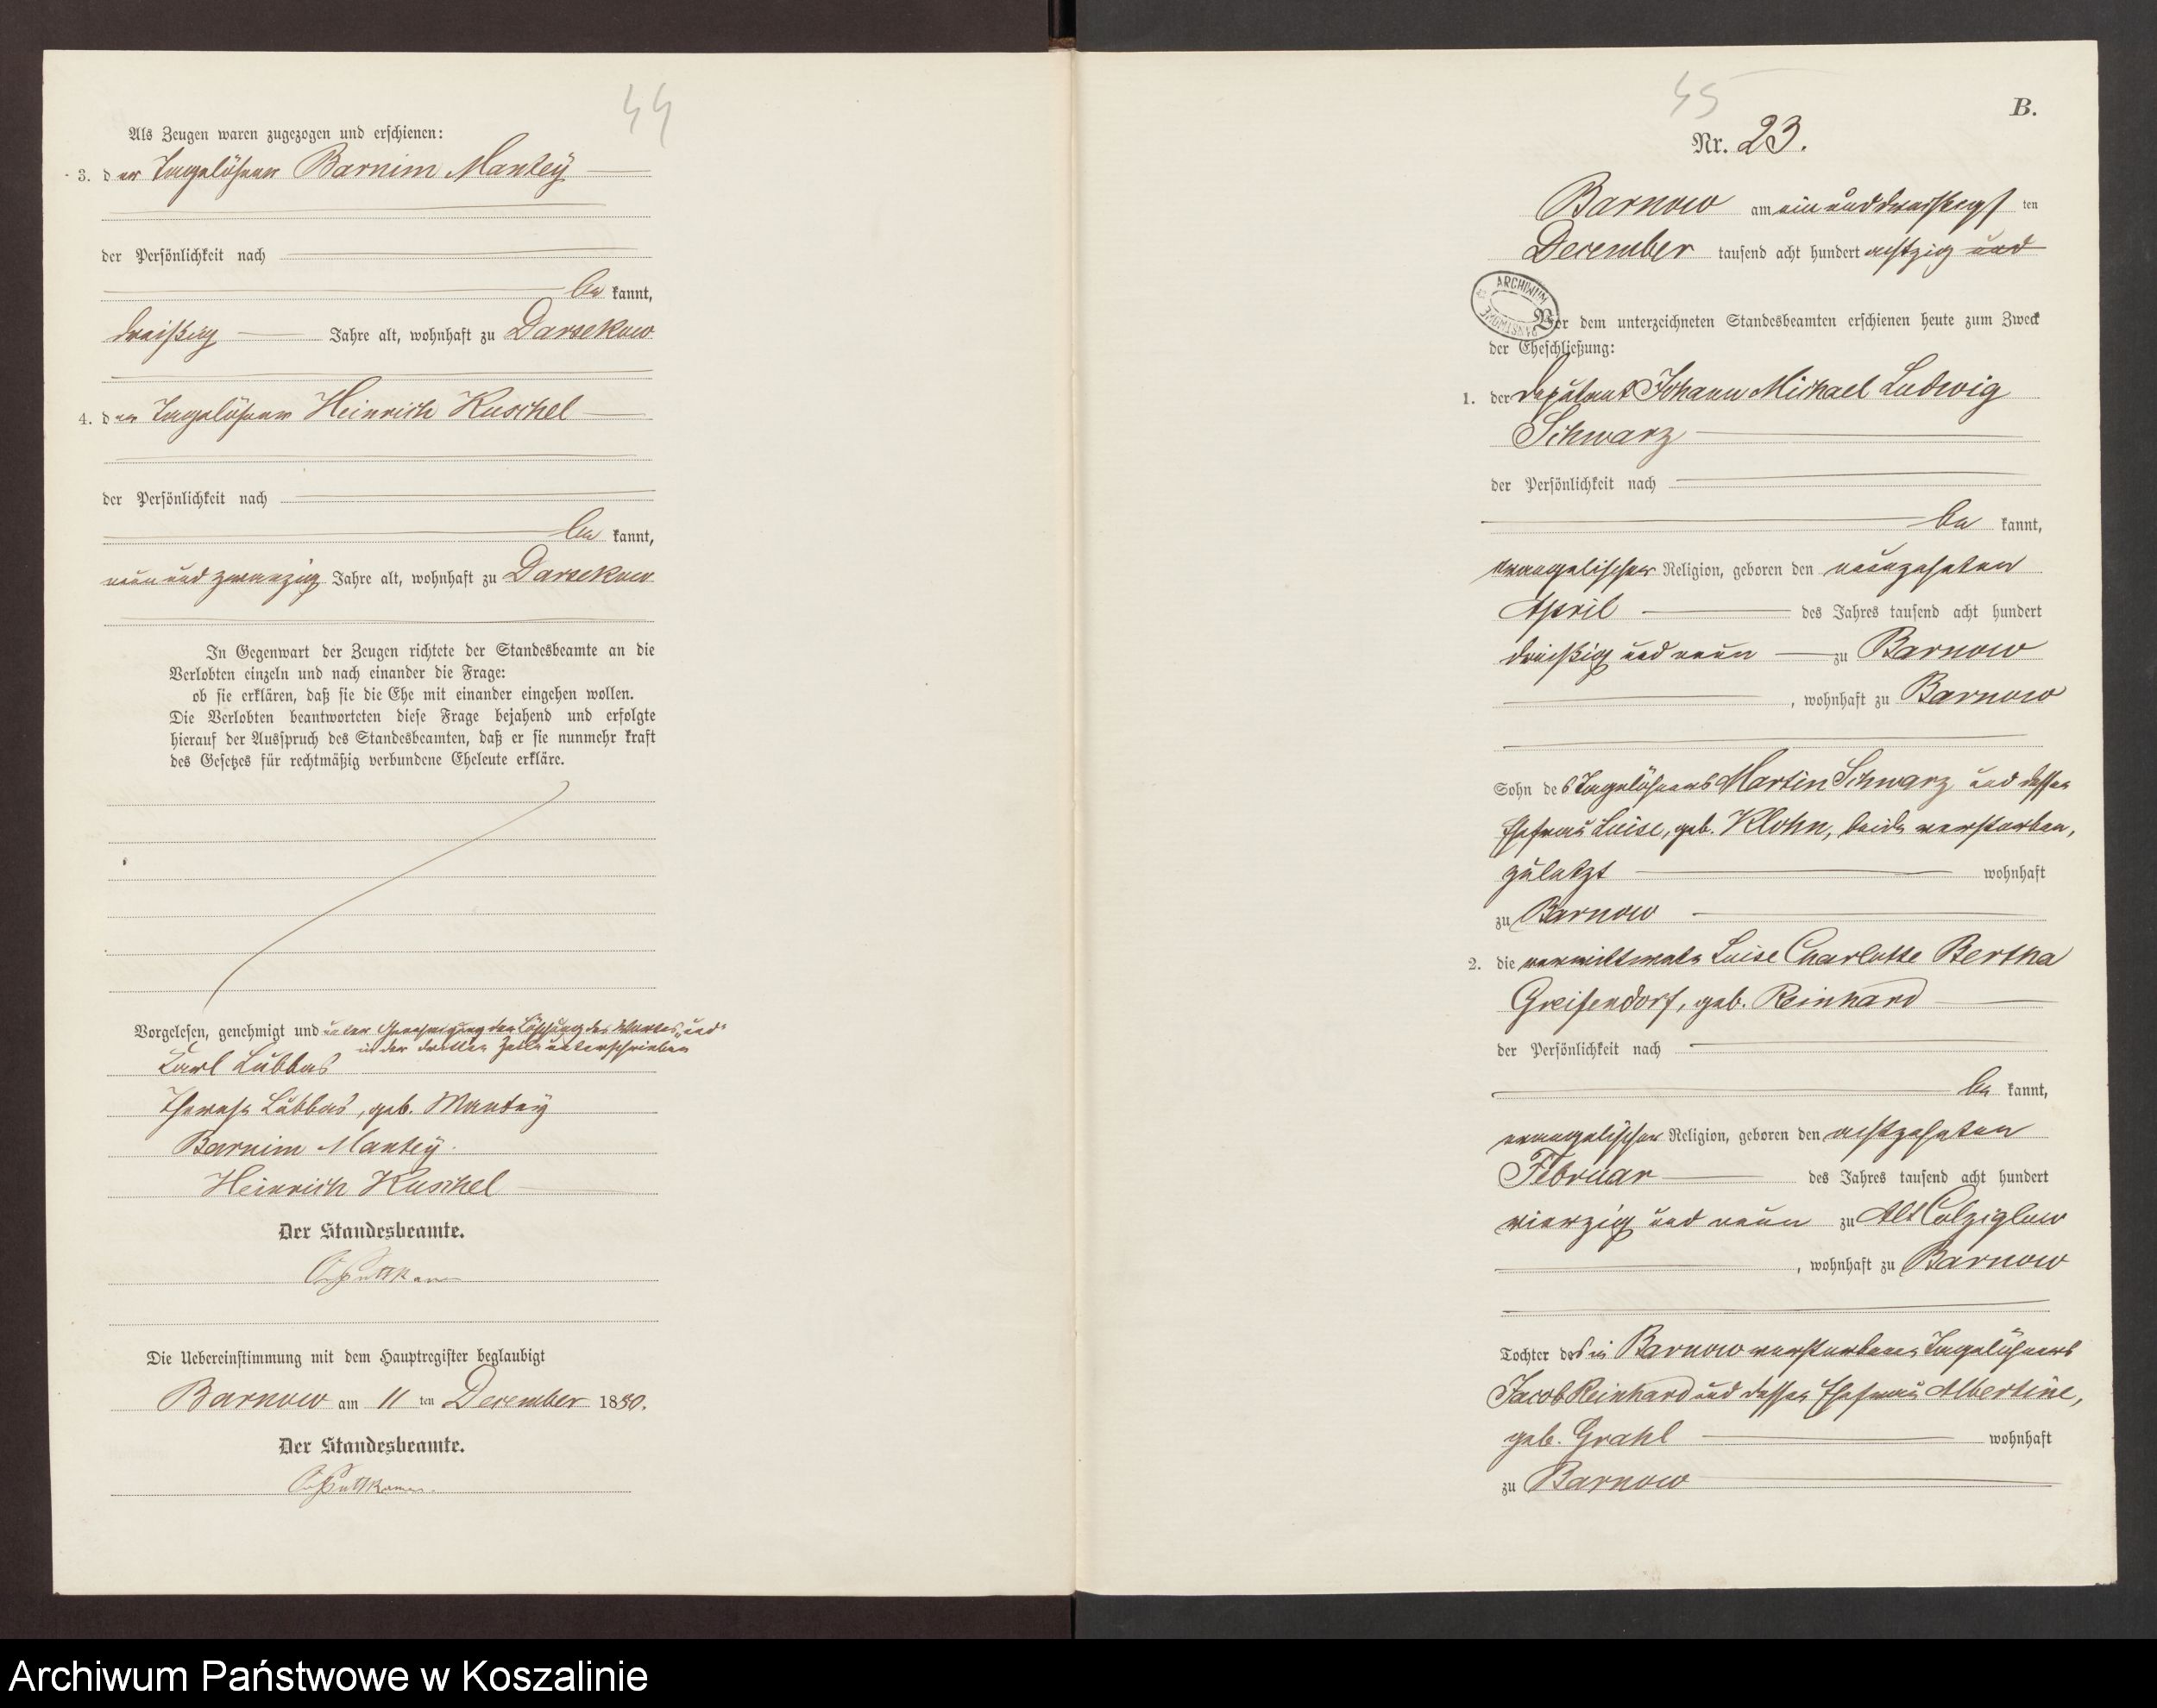 44
Als Zeugen waren zugezogen und erschienen:
3. der Tagelöhner Barnim Mantey
der Persönlichkeit nach
be kannt,
dreißig Jahre alt, wohnhaft zu Darsekow
4. der Tagelöhner Heinrich Kuschel
der Persönlichkeit nach
be kannt,
neun und zwanzig Jahre alt, wohnhaft zu Darsekow
In Gegenwart der Zeugen richtete der Standesbeamte an die
Verlobten einzeln und nach einander die Frage:
ob sie erklären, daß sie die Ehe mit einander eingehen wollen.
Die Verlobten beantworteten diese Frage bejahend und erfolgte
hierauf der Ausspruch des Standesbeamten, daß er sie nunmehr kraft
des Gesetzes für rechtmäßig verbundene Eheleute erkläre.
Vorgelesen, genehmigt und unter Genehmigung der Löschung des Wortes „und“
in der dritten Zeile unterschrieben
Karl Lübbas
Therese Lübbas, geb. Mantey
Barnim Mantey.
Heinrich Kuschel
Der Standesbeamte.
Die Uebereinstimmung mit dem Hauptregister beglaubigt
Barnow am 11 ten December 1880.
Der Standesbeamte.
45
B.
Nr. 23.
Barnow am ein und dreißigst ten
December tausend acht hundert achtzig und
ARCHIWUM PAŃSTWOWE
Vor dem unterzeichneten Standesbeamten erschienen heute zum Zweck
der Eheschließung:
1. der Deputant Johann Michael Ludwig
Schwarz
der Persönlichkeit nach
be kannt,
evangelischer Religion, geboren den neunzehnten
April des Jahres tausend acht hundert
dreißig und neun zu Barnow
, wohnhaft zu Barnow
Sohn des Tagelöhners Martin Schwarz und dessen
Ehefrau Luise, geb. Klohn, beide verstorben,
zuletzt wohnhaft
zu Barnow
2. die verwittwete Luise Charlotte Bertha
Greifendorf, geb. Reinhard
der Persönlichkeit nach
be kannt,
evangelischer Religion, geboren den achtzehnten
Februar des Jahres tausend acht hundert
vierzig und neun zu Alt Colziglow
, wohnhaft zu Barnow
Tochter des in Barnow verstorbenen Tagelöhners
Jacob Reinhard und dessen Ehefrau Albertine,
geb. Grahl wohnhaft
zu Barnow
Archiwum Państwowe w Koszalinie